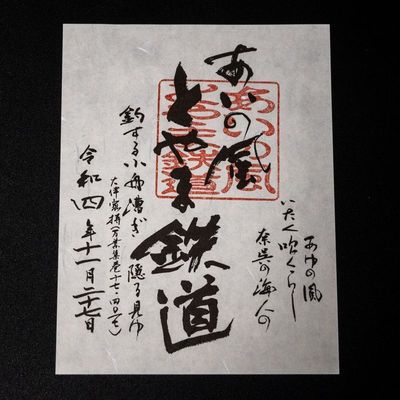 あゆの風
いたく吹くらし
奈呉の海人の
あいの風
とやま
鉄道
あいの風
とやま鉄道
釣する小舟漕ぎ隠る見ゆ
大伴家持(万葉集巻十七・四〇一七)
令和四年十一月二十七日